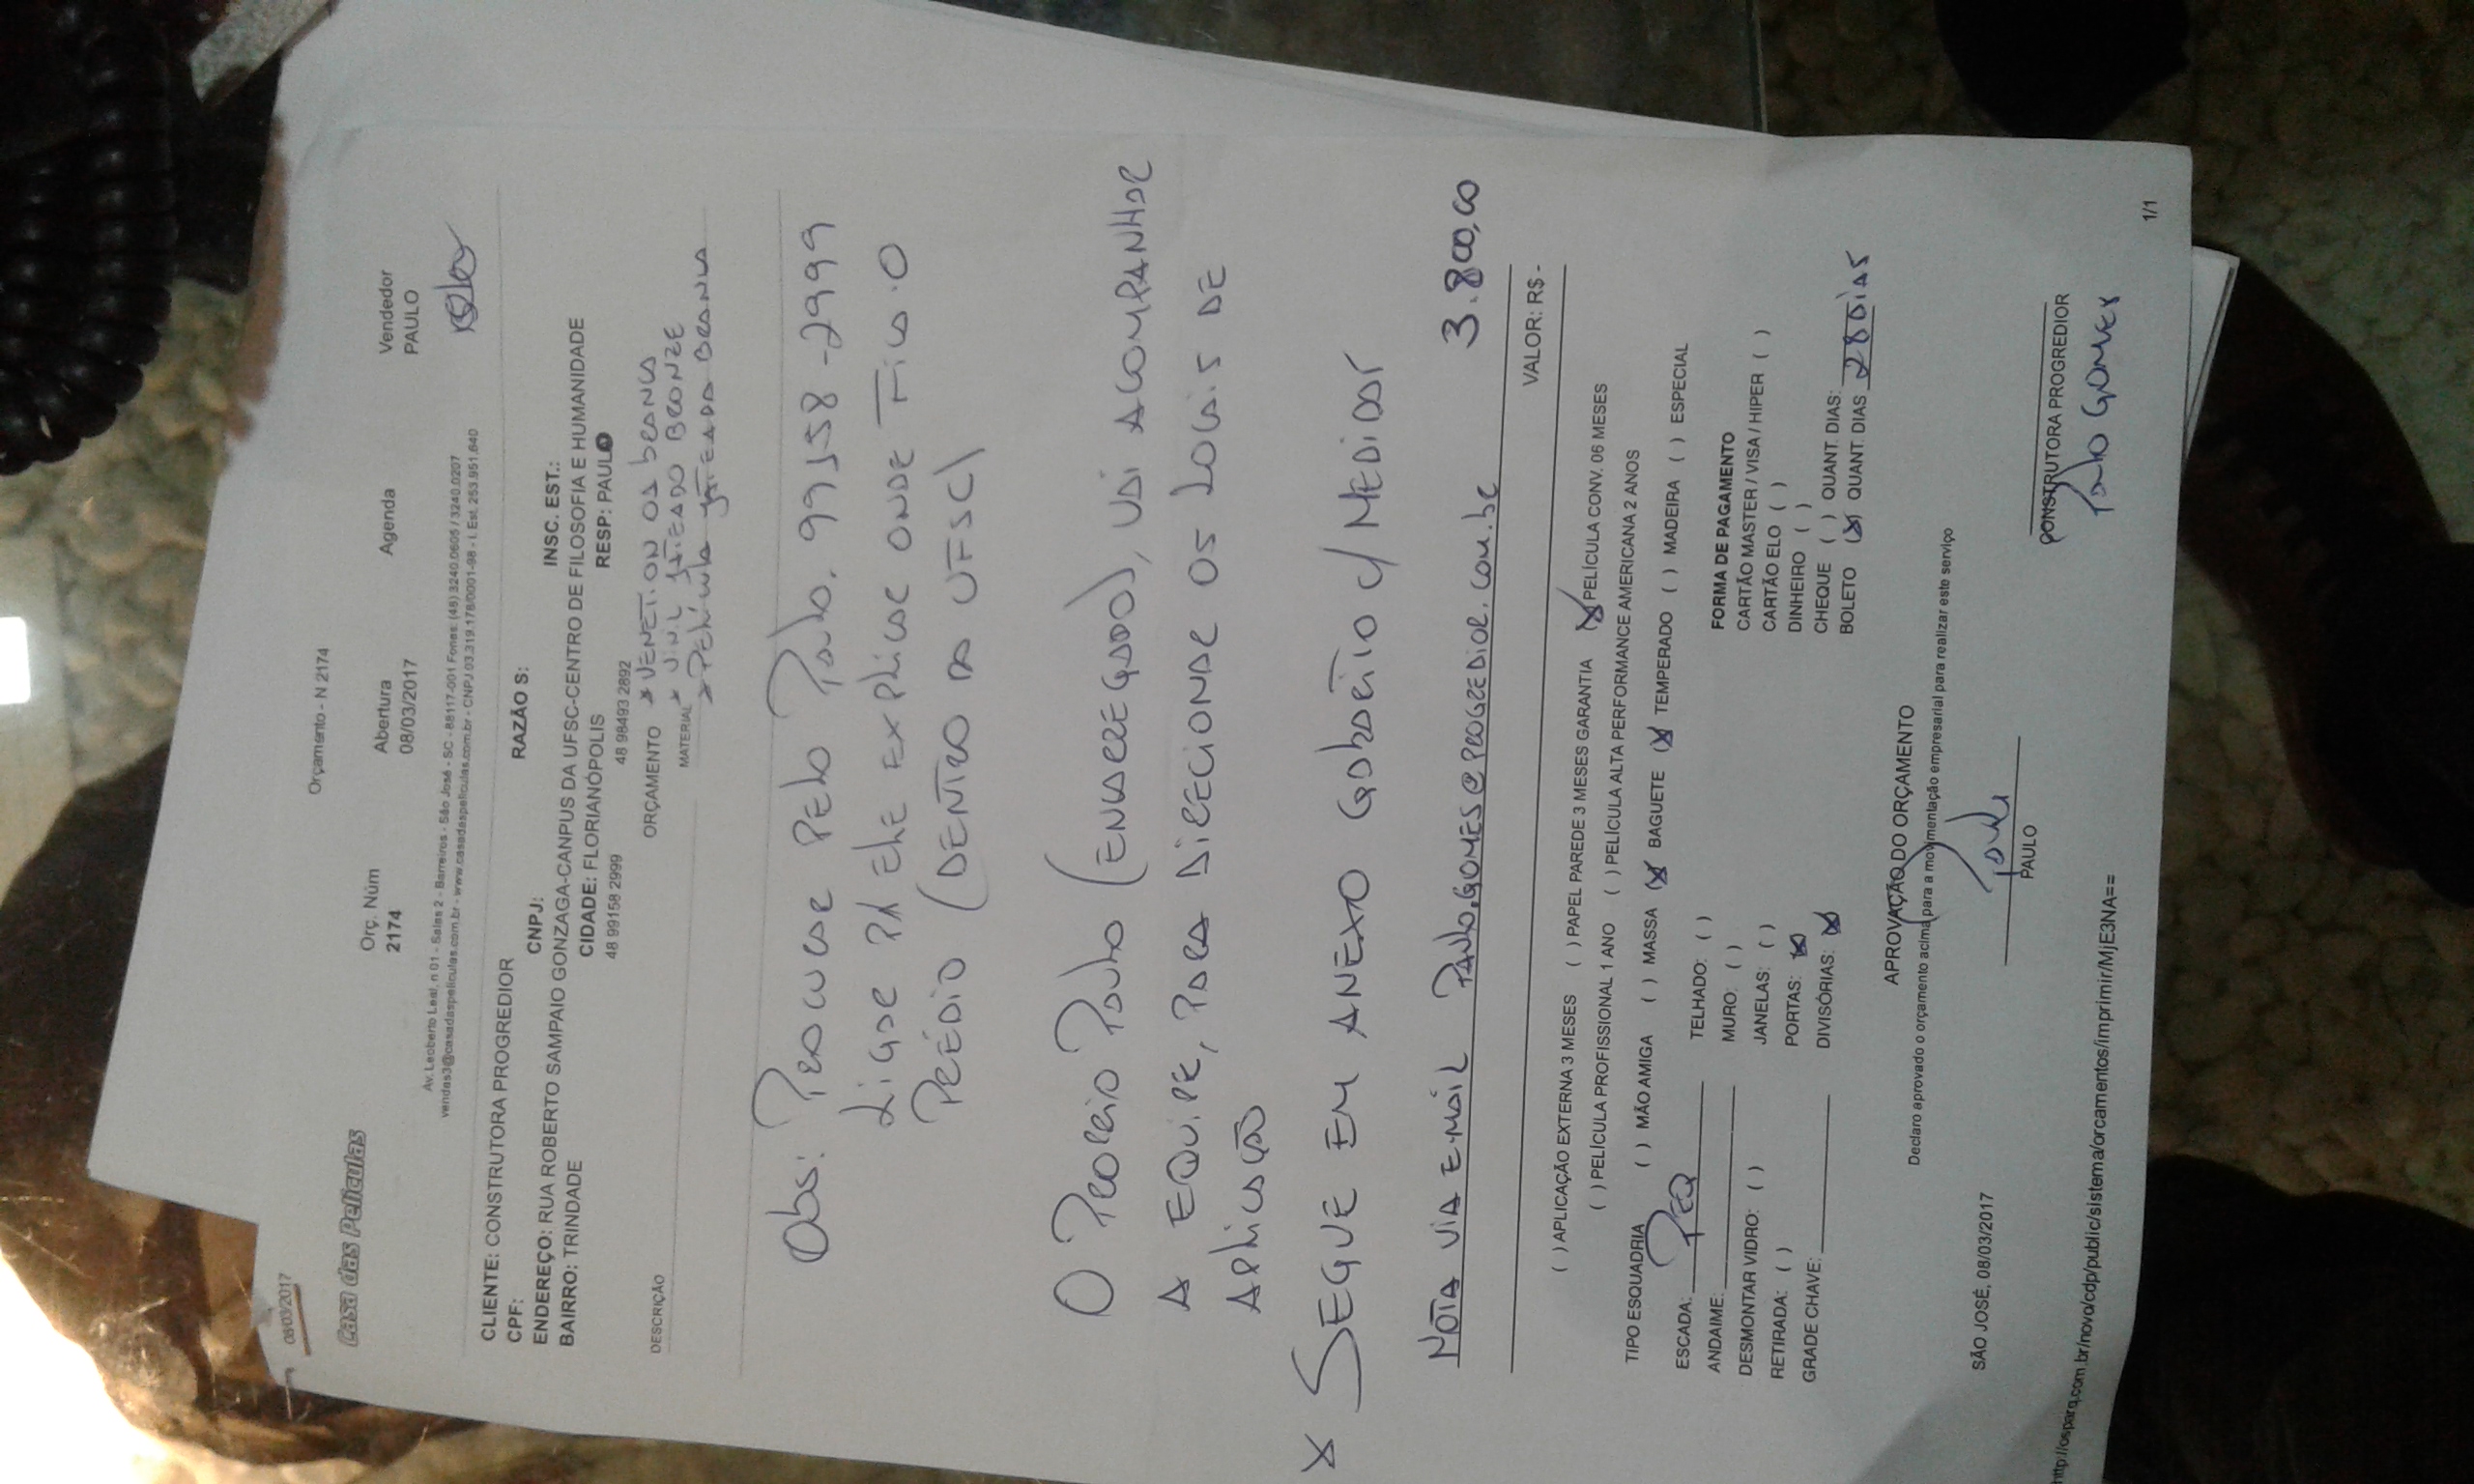 08/03/2017
Orçamento - N 2174
Casa das Películas
Orç. Núm
2174
Abertura
08/03/2017
Agenda
Vendedor
PAULO
Av. Leoberto Leal, n 01 - Salas 2 - Barreiros - São José - SC - 88117-001 Fones: (48) 3240.0605 / 3240.0207
vendas3@casadaspeliculas.com.br - www.casadaspeliculas.com.br - CNPJ 03.319.178/0001-98 - I. Est. 253.951.640
CLIENTE: CONSTRUTORA PROGREDIOR
RAZÃO S:
CPF:
CNPJ:
INSC. EST.:
ENDEREÇO: RUA ROBERTO SAMPAIO GONZAGA-CANPUS DA UFSC-CENTRO DE FILOSOFIA E HUMANIDADE
BAIRRO: TRINDADE
CIDADE: FLORIANÓPOLIS
RESP: PAULO
48 99158 2999
48 98493 2892
ORÇAMENTO
MATERIAL
* VINIL JATEADO BRONZE
* PELÍCULA JATEADA BRANCA
DESCRIÇÃO
Obs: PROCURAR PELO PAULO. 99158-2999
LIGAR P/ ELE EXPLICAR ONDE FICA O
PRÉDIO (DENTRO DA UFSC)
O PRÓPRIO PAULO (ENCARREGADO), VAI ACOMPANHAR
A EQUIPE, PARA DIRECIONAR OS LOCAIS DE
APLICAÇÃO
* SEGUE EM ANEXO GABARITO C/ MEDIDAS
NOTA VIA E-MAIL PAULO.GOMES@PROGREDIOR.COM.BR 3.800,00
VALOR: R$-
( ) APLICAÇÃO EXTERNA 3 MESES ( ) PAPEL PAREDE 3 MESES GARANTIA (X) PELÍCULA CONV. 06 MESES
( ) PELÍCULA PROFISSIONAL 1 ANO ( ) PELÍCULA ALTA PERFORMANCE AMERICANA 2 ANOS
TIPO ESQUADRIA ( ) MÃO AMIGA ( ) MASSA (X) BAGUETE (X) TEMPERADO ( ) MADEIRA ( ) ESPECIAL
ESCADA: PEQ
ANDAIME:
DESMONTAR VIDRO: ( )
RETIRADA: ( )
GRADE CHAVE:
TELHADO: ( )
MURO: ( )
JANELAS: ( )
PORTAS: (X)
DIVISÓRIAS: (X)
FORMA DE PAGAMENTO
CARTÃO MASTER / VISA / HIPER ( )
CARTÃO ELO ( )
DINHEIRO ( )
CHEQUE ( ) QUANT. DIAS:
BOLETO (X) QUANT. DIAS 28 DIAS
APROVAÇÃO DO ORÇAMENTO
Declaro aprovado o orçamento acima para a movimentação empresarial para realizar este serviço
SÃO JOSÉ, 08/03/2017
Paulo
PAULO
CONSTRUTORA PROGREDIOR
PAULO GOMES
http://osparq.com.br/novo/cdp/public/sistema/orcamentos/imprimir/MjE3NA==
1/1